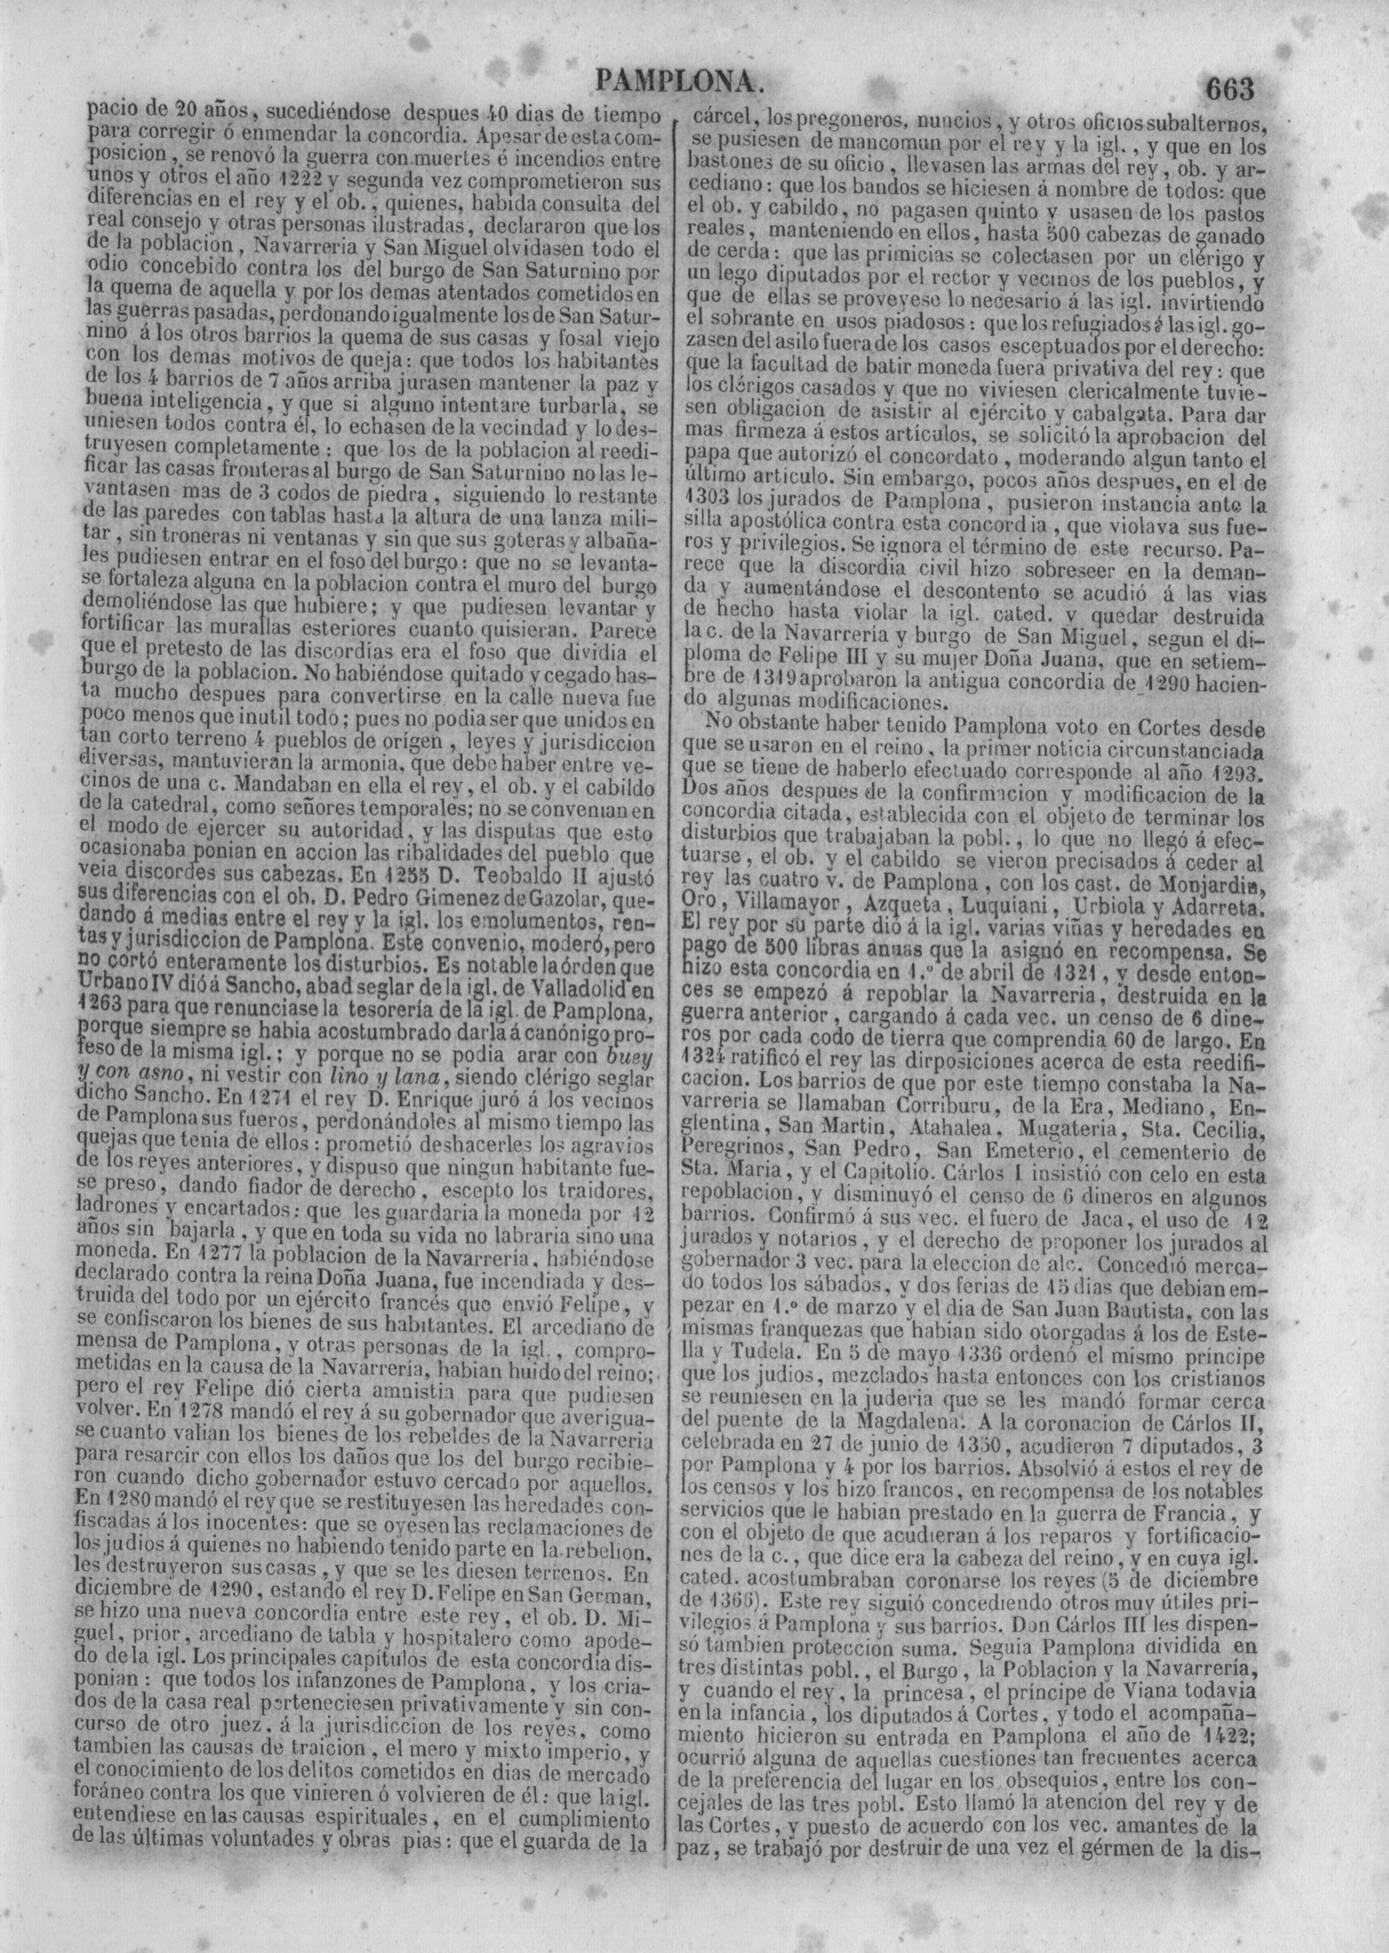 PAMPLONA.
663
pacio de 20 años, sucediéndose despues 40 dias de tiempo
para corregir ó enmendar la concordia. Apesar de esta com-
posicion, se renovó la guerra con muertes é incendios entre
unos y otros el año 1222 y segunda vez comprometieron sus
diferencias en el rey y el ob., quienes, habida consulta del
real consejo y otras personas ilustradas, declararon que los
de la poblacion, Navarreria y San Miguel olvidasen todo el
odio concebido contra los del burgo de San Saturnino por
la quema de aquella y por los demas atentados cometidos en
las guerras pasadas, perdonando igualmente los de San Satur-
nino á los otros barrios la quema de sus casas y fosal viejo
con los demas motivos de queja: que todos los habitantes
de los 4 barrios de 7 años arriba jurasen mantener la paz y
buena inteligencia, y que si alguno intentare turbarla, se
uniesen todos contra él, lo echasen de la vecindad y lo des-
truyesen completamente: que los de la poblacion al reedi-
ficar las casas fronteras al burgo de San Saturnino no las le-
vantasen mas de 3 codos de piedra, siguiendo lo restante
de las paredes con tablas hasta la altura de una lanza mili-
tar, sin troneras ni ventanas y sin que sus goteras y albaña-
les pudiesen entrar en el foso del burgo: que no se levanta-
se fortaleza alguna en la poblacion contra el muro del burgo
demoliéndose las que hubiere; y que pudiesen levantar y
fortificar las murallas esteriores cuanto quisieran. Parece
que el pretesto de las discordias era el foso que dividia el
burgo de la poblacion. No habiéndose quitado y cegado has-
ta mucho despues para convertirse en la calle nueva fue
poco menos que inutil todo; pues no podia ser que unidos en
tan corto terreno 4 pueblos de orígen, leyes y jurisdiccion
diversas, mantuvieran la armonia, que debe haber entre ve-
cinos de una c. Mandaban en ella el rey, el ob. y el cabildo
de la catedral, como señores temporales; no se convenian en
el modo de ejercer su autoridad, y las disputas que esto
ocasionaba ponian en accion las ribalidades del pueblo que
veia discordes sus cabezas. En 1255 D. Teobaldo II ajustó
sus diferencias con el ob. D. Pedro Gimenez de Gazolar, que-
dando á medias entre el rey y la igl. los emolumentos, ren-
tas y jurisdiccion de Pamplona. Este convenio, moderó, pero
no cortó enteramente los disturbios. Es notable la órden que
Urbano IV dió á Sancho, abad seglar de la igl. de Valladolid en
1263 para que renunciase la tesorería de la igl. de Pamplona,
porque siempre se habia acostumbrado darla á canónigo pro-
feso de la misma igl.; y porque no se podia arar con buey
y con asno, ni vestir con lino y lana, siendo clérigo seglar
dicho Sancho. En 1271 el rey D. Enrique juró á los vecinos
de Pamplona sus fueros, perdonándoles al mismo tiempo las
quejas que tenia de ellos: prometió deshacerles los agravios
de los reyes anteriores, y dispuso que ningun habitante fue-
se preso, dando fiador de derecho, escepto los traidores,
ladrones y encartados: que les guardaria la moneda por 12
años sin bajarla, y que en toda su vida no labraria sino una
moneda. En 1277 la poblacion de la Navarrería, habiéndose
declarado contra la reina Doña Juana, fue incendiada y des-
truida del todo por un ejército francés que envió Felipe, y
se confiscaron los bienes de sus habitantes. El arcediano de
mensa de Pamplona, y otras personas de la igl., compro-
metidas en la causa de la Navarrería, habian huido del reino;
pero el rey Felipe dió cierta amnistia para que pudiesen
volver. En 1278 mandó el rey á su gobernador que averigua-
se cuanto valian los bienes de los rebeldes de la Navarreria
para resarcir con ellos los daños que los del burgo recibie-
ron cuando dicho gobernador estuvo cercado por aquellos.
En 1280 mandó el rey que se restituyesen las heredades con-
fiscadas á los inocentes: que se oyesen las reclamaciones de
los judios á quienes no habiendo tenido parte en la rebelion,
les destruyeron sus casas, y que se les diesen terrenos. En
diciembre de 1290, estando el rey D. Felipe en San German,
se hizo una nueva concordia entre este rey, el ob. D. Mi-
guel, prior, arcediano de tabla y hospitalero como apode-
do de la igl. Los principales capítulos de esta concordia dis-
ponian: que todos los infanzones de Pamplona, y los cria-
dos de la casa real perteneciesen privativamente y sin con-
curso de otro juez, á la jurisdiccion de los reyes, como
tambien las causas de traicion, el mero y mixto imperio, y
el conocimiento de los delitos cometidos en dias de mercado
foráneo contra los que vinieren ó volvieren de él: que la igl.
entendiese en las causas espirituales, en el cumplimiento
de las últimas voluntades y obras pias: que el guarda de la
cárcel, los pregoneros, nuncios, y otros oficios subalternos,
se pusiesen de mancomun por el rey y la igl., y que en los
bastones de su oficio, llevasen las armas del rey, ob. y ar-
cediano: que los bandos se hiciesen á nombre de todos: que
el ob. y cabildo, no pagasen quinto y usasen de los pastos
reales, manteniendo en ellos, hasta 500 cabezas de ganado
de cerda: que las primicias se colectasen por un clérigo y
un lego diputados por el rector y vecinos de los pueblos, y
que de ellas se proveyese lo necesario á las igl. invirtiendo
el sobrante en usos piadosos: que los refugiados á las igl. go-
zasen del asilo fuera de los casos esceptuados por el derecho:
que la facultad de batir moneda fuera privativa del rey: que
los clérigos casados y que no viviesen clericalmente tuvie-
sen obligacion de asistir al ejército y cabalgata. Para dar
mas firmeza á estos artículos, se solicitó la aprobacion del
papa que autorizó el concordato, moderando algun tanto el
último artículo. Sin embargo, pocos años despues, en el de
1303 los jurados de Pamplona, pusieron instancia ante la
silla apostólica contra esta concordia, que violava sus fue-
ros y privilegios. Se ignora el término de este recurso. Pa-
rece que la discordia civil hizo sobreseer en la deman-
da y aumentándose el descontento se acudió á las vias
de hecho hasta violar la igl. cated. y quedar destruida
la c. de la Navarrería y burgo de San Miguel, segun el di-
ploma de Felipe III y su mujer Doña Juana, que en setiem-
bre de 1319 aprobaron la antigua concordia de 1290 hacien-
do algunas modificaciones.
No obstante haber tenido Pamplona voto en Cortes desde
que se usaron en el reino, la primer noticia circunstanciada
que se tiene de haberlo efectuado corresponde al año 1293.
Dos años despues de la confirmacion y modificacion de la
concordia citada, establecida con el objeto de terminar los
disturbios que trabajaban la pobl., lo que no llegó á efec-
tuarse, el ob. y el cabildo se vieron precisados á ceder al
rey las cuatro v. de Pamplona, con los cast. de Monjardin,
Oro, Villamayor, Azqueta, Luquiani, Urbiola y Adarreta.
El rey por su parte dió á la igl. varias viñas y heredades en
pago de 500 libras anuas que la asignó en recompensa. Se
hizo esta concordia en 1.º de abril de 1321, y desde enton-
ces se empezó á repoblar la Navarreria, destruida en la
guerra anterior, cargando á cada vec. un censo de 6 dine-
ros por cada codo de tierra que comprendia 60 de largo. En
1324 ratificó el rey las dirposiciones acerca de esta reedifi-
cacion. Los barrios de que por este tiempo constaba la Na-
varreria se llamaban Corriburu, de la Era, Mediano, En-
glentina, San Martin, Atahalea, Mugateria, Sta. Cecilia,
Peregrinos, San Pedro, San Emeterio, el cementerio de
Sta. Maria, y el Capitolio. Cárlos I insistió con celo en esta
repoblacion, y disminuyó el censo de 6 dineros en algunos
barrios. Confirmó á sus vec. el fuero de Jaca, el uso de 12
jurados y notarios, y el derecho de proponer los jurados al
gobernador 3 vec. para la eleccion de alc. Concedió merca-
do todos los sábados, y dos ferias de 15 dias que debian em-
pezar en 1.º de marzo y el dia de San Juan Bautista, con las
mismas franquezas que habian sido otorgadas á los de Este-
lla y Tudela. En 5 de mayo 1336 ordenó el mismo príncipe
que los judios, mezclados hasta entonces con los cristianos
se reuniesen en la juderia que se les mandó formar cerca
del puente de la Magdalena. A la coronacion de Cárlos II,
celebrada en 27 de junio de 1350, acudieron 7 diputados, 3
por Pamplona y 4 por los barrios. Absolvió á estos el rey de
los censos y los hizo francos, en recompensa de los notables
servicios que le habian prestado en la guerra de Francia, y
con el objeto de que acudieran á los reparos y fortificacio-
nes de la c., que dice era la cabeza del reino, y en cuya igl.
cated. acostumbraban coronarse los reyes (5 de diciembre
de 1366). Este rey siguió concediendo otros muy útiles pri-
vilegios á Pamplona y sus barrios. Don Cárlos III les dispen-
só tambien proteccion suma. Seguia Pamplona dividida en
tres distintas pobl., el Burgo, la Poblacion y la Navarrería,
y cuando el rey, la princesa, el príncipe de Viana todavia
en la infancia, los diputados á Cortes, y todo el acompaña-
miento hicieron su entrada en Pamplona el año de 1422;
ocurrió alguna de aquellas cuestiones tan frecuentes acerca
de la preferencia del lugar en los obsequios, entre los con-
cejales de las tres pobl. Esto llamó la atencion del rey y de
las Cortes, y puesto de acuerdo con los vec. amantes de la
paz, se trabajó por destruir de una vez el gérmen de la dis-